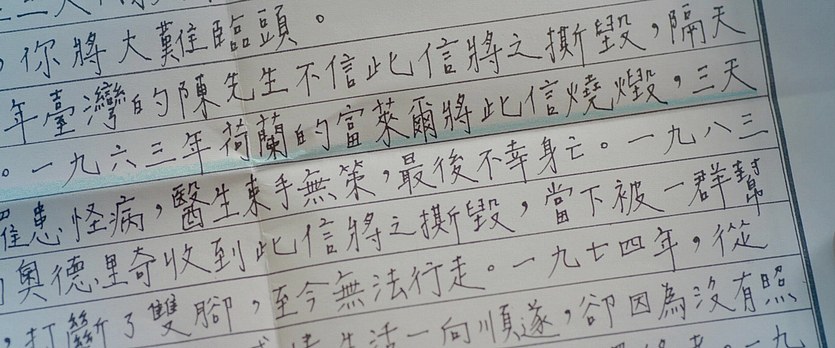 ，你將大難臨頭。
年臺灣的陳先生不信此信將之撕毀，隔天
。一九六三年荷蘭的富萊爾將此信燒燬，三天
罹患怪病，醫生束手無策，最後不幸身亡。一九八三
奧德里奇收到此信將之撕毀，當下被一群幫
，打斷了雙腳，至今無法行走。一九七四年，從
生活一向順遂，卻因為沒有照
一九